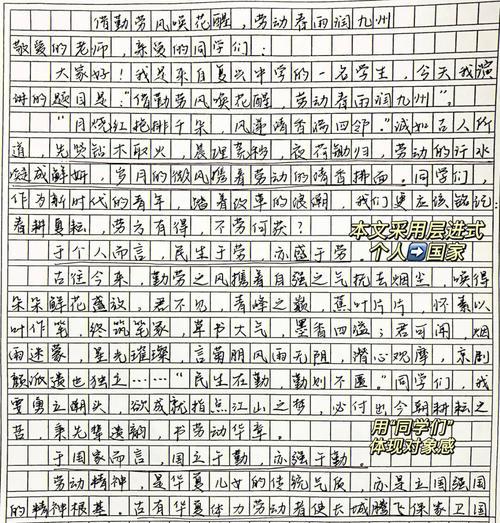 借勤劳风唤花醒，劳动春雨润九州
敬爱的老师，亲爱的同学们：
大家好！我是来自复兴中学的一名学生，今天我演
讲的题目是：“借勤劳风唤花醒，劳动春雨润九州”。
“日烧红艳排千朵，风递清香满四邻。”诚如古人所
道，先贤钻木取火，晨理荒秽，夜荷锄归，劳动的汗水
凝成鲜妍，岁月的微风携着劳动的清香拂面。同学们，
作为新时代的青年，踏着改革的浪潮，我们更应该铭记：
春耕夏耘，劳方有得，不劳何获？
本文采用层进式
个人➡国家
于个人而言，民生于劳，亦盛于劳。
古往今来，勤劳之风携着自强之气抚去烟尘，唤得
朵朵鲜花盛放，君不见，青峰之巅，蕉叶片片，怀素以
叶作笔，终筑笔冢，草书大气，墨香四溢；君可闻，烟
雨迷蒙，星光璀璨，言菊朋风雨无阴，潜心观摩，京剧
颓派遗也独立……“民生在勤，勤则不匮”。同学们，我
要勇立潮头，欲成就指点江山之梦，必付出今朝耕耘之
苦，秉先辈遗韵，书劳动华章。
用“同学们”
体现对象感
于国家而言，国立于勤，亦强于勤。
劳动精神，是华夏儿女的传统气质，亦是立国强国
的精神根基。古有华夏伟力劳动者使长城腾飞保家卫国